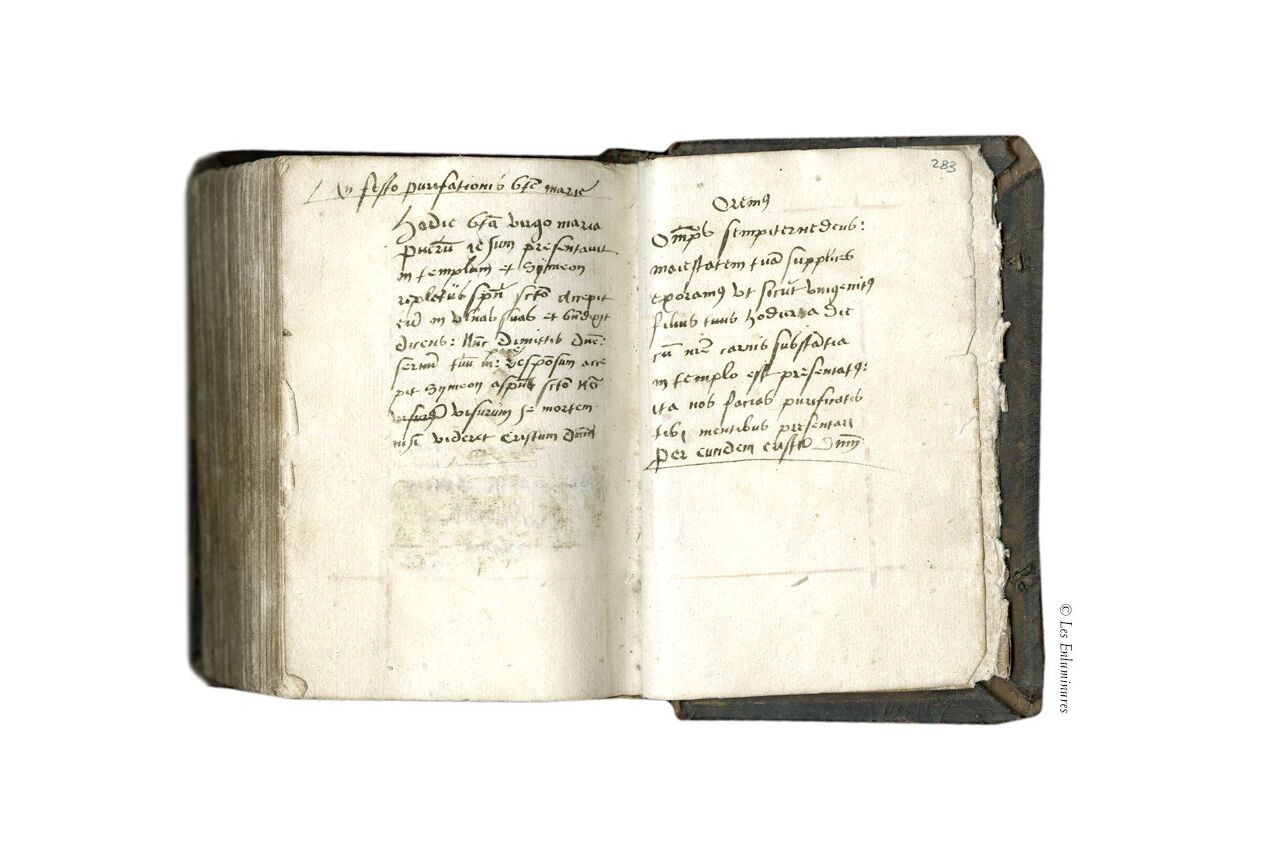 In festo purifationis bte marie
Hodie bta virgo maria
puerū iesum presentauit
in templum et Symeon
repletus spū scto accepit
eū in vlnas suas et bndixit
dicens: Nūc Dimittis dne:
seruū tuū in pace: Responsum acce
pit Symeon a spū scto nō
visurū visurum se mortem
nisi videret Cristum dnm
283
Oremus
Omps sempiterne deus:
maiestatem tuā supplices
exoramus vt sicut vnigenitus
filius tuus hodierna die
cū nre carnis substātia
in templo est presentatus:
ita nos facias purificatis
tibi mentibus presentari
Per eundem cristū dnm
© Les Enluminures